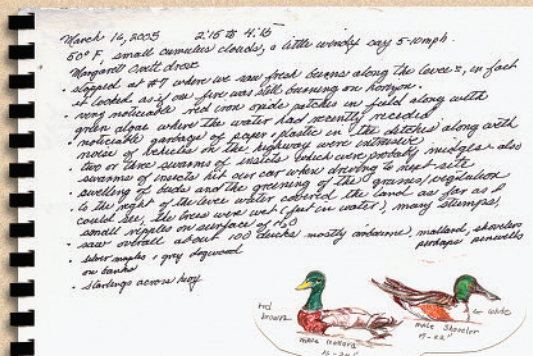 March 16, 2003 2:15 to 4:15
50° F, small cumulus clouds, a little windy say 5-10 mph.
Margarett drove
• stopped at #7 where we saw fresh burns along the levees, in fact
it looked as if one fire was still burning on horizon.
• very noticeable red iron oxide patches in field along with
green algae where the water had recently receded
• noticeable garbage of paper + plastic in the ditches along with
noise of vehicles on the highway were intrusive
• two or three swarms of insects which were probably midges - also
swarms of insects hit our car when driving to next site
• swelling of buds and the greening of the grasses/vegetation
• to the right of the levee water covered the land as far as I
could see, the trees were wet (feet in water), many stumps,
small ripples on surface of H2O
• saw overall about 100 ducks mostly airborne, mallards, shovelers
perhaps
• silver maples + grey dogwood
on banks
• starlings across hwy
red
brown
male mallard
white
male Shoveler
17-22"